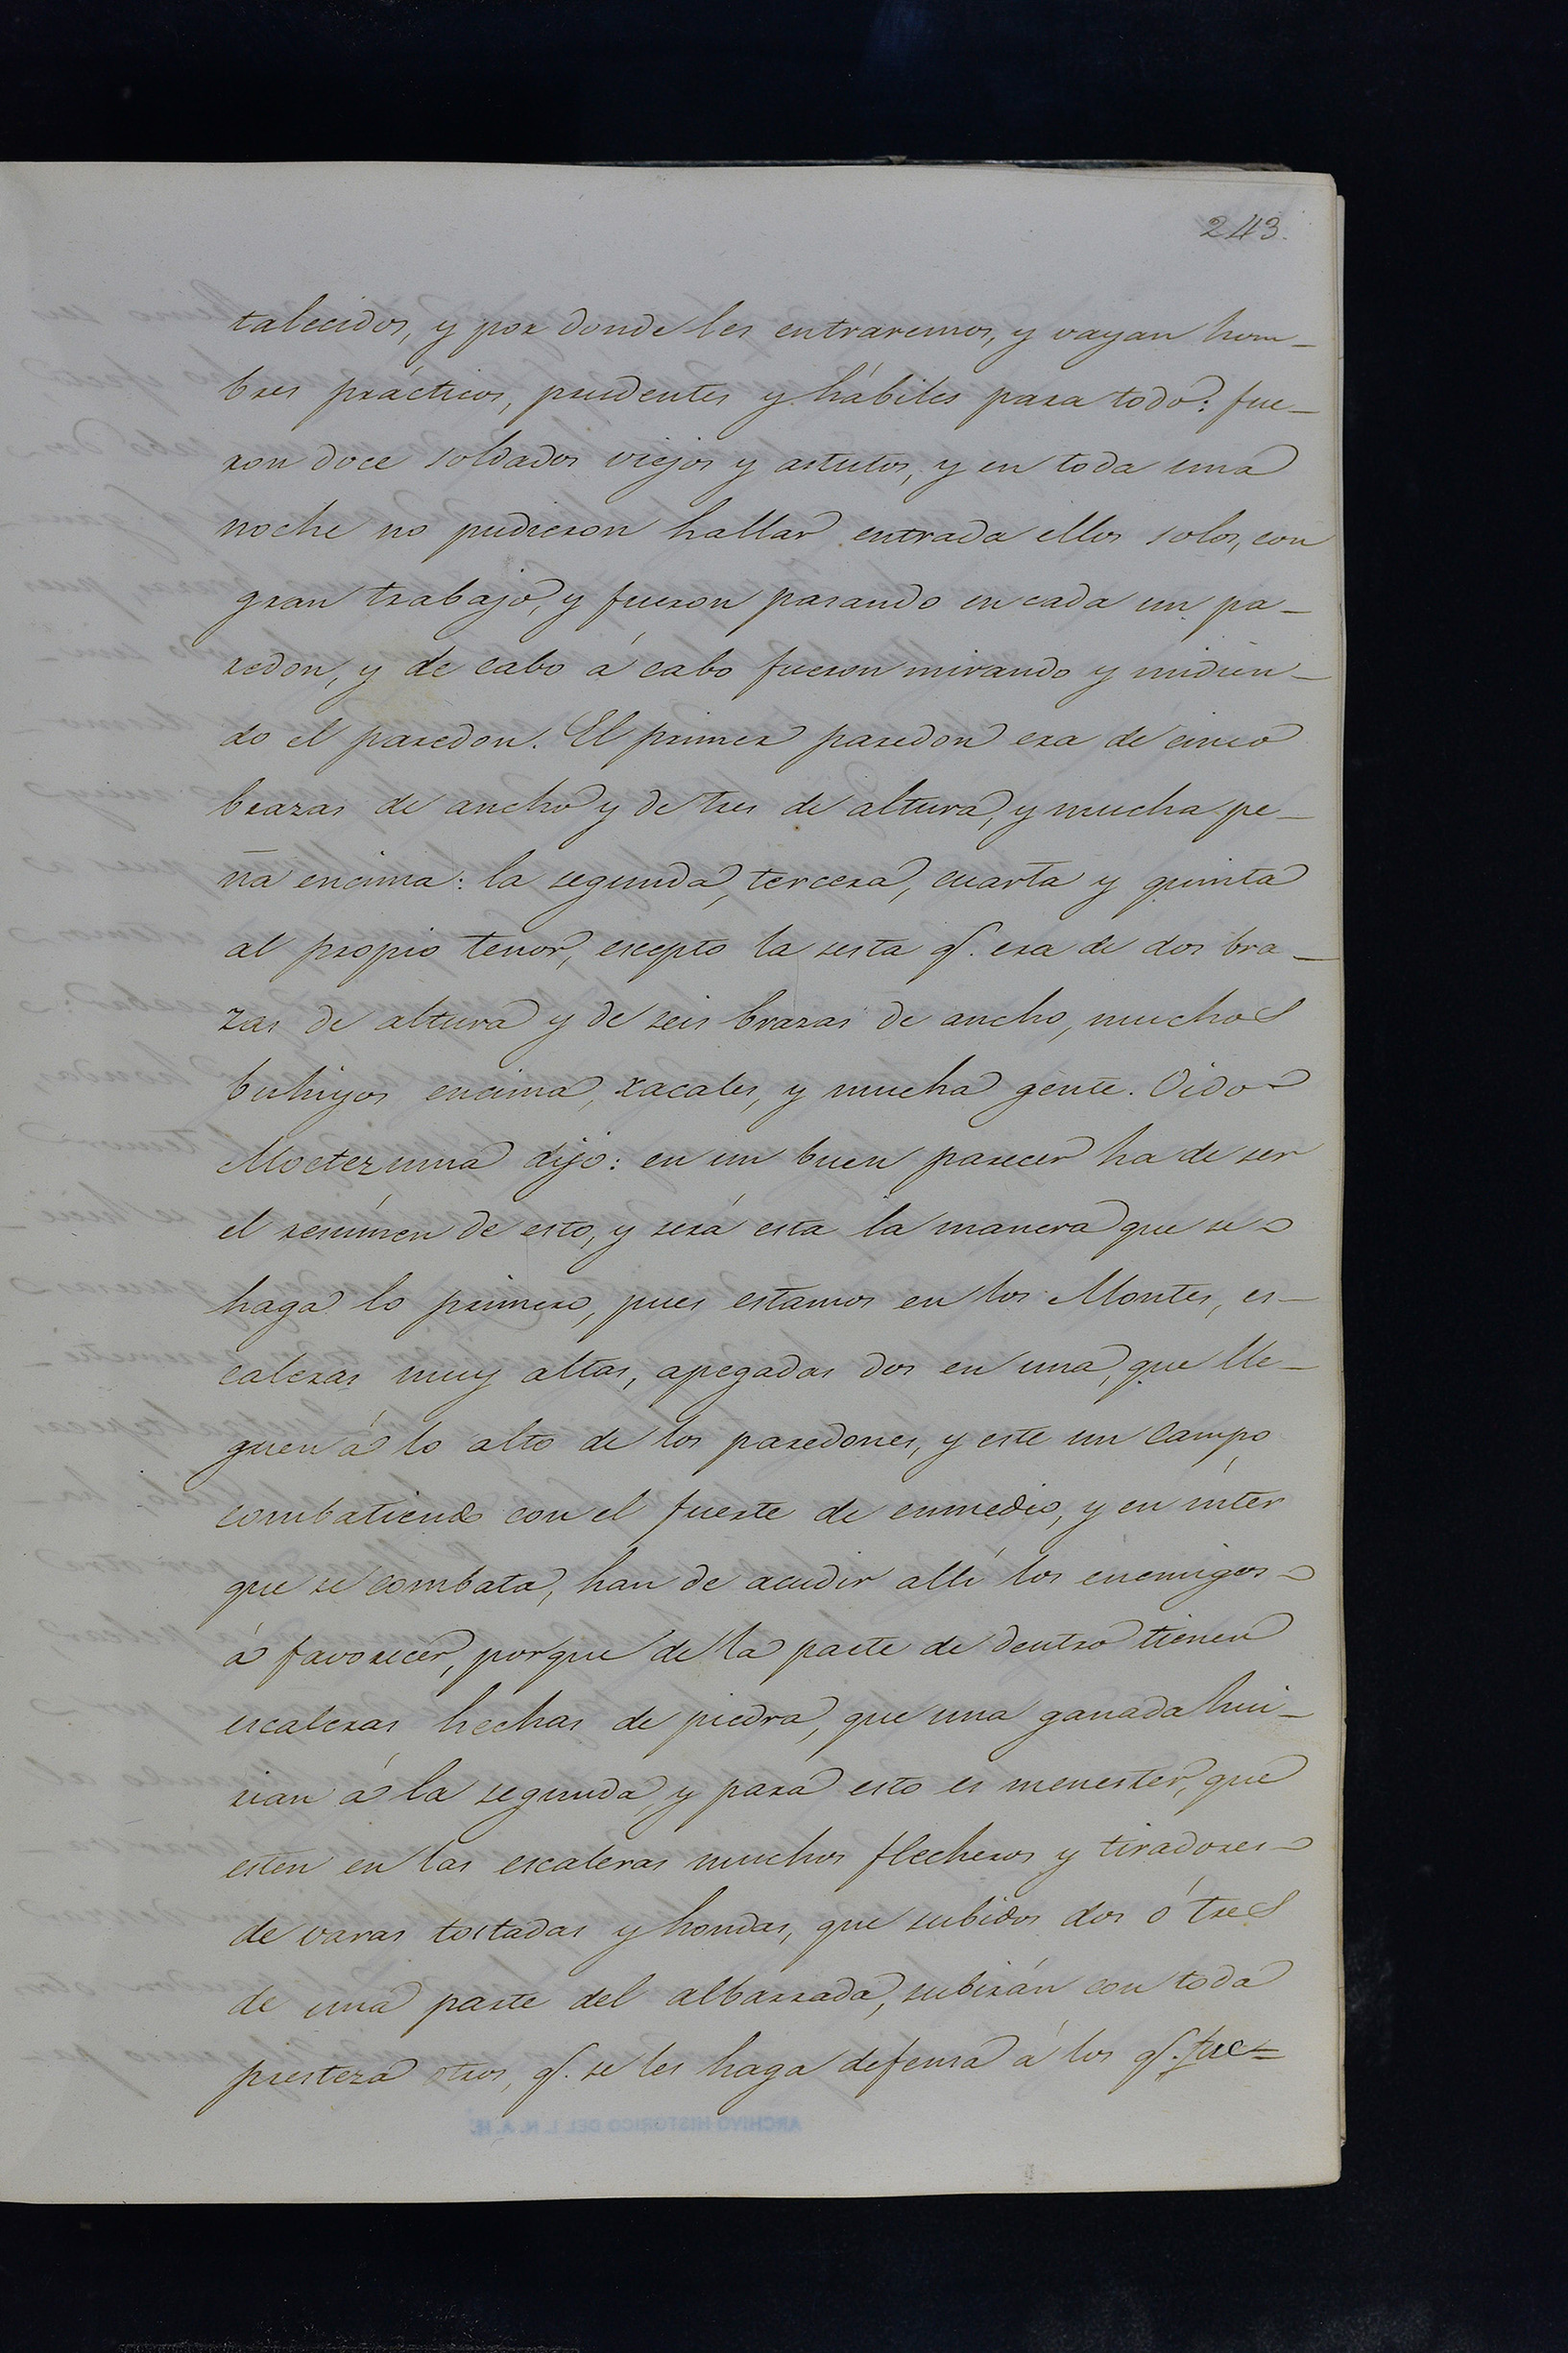 243.
talecidos, y por donde les entraremos, y vayan hom-
bres prácticos, prudentes y hábiles para todo: fue-
ron doce soldados viejos y astutos, y en toda una
noche no pudieron hallar entrada ellos solos, con
gran trabajo, y fueron pasando en cada un pa-
redon, y de cabo á cabo fueron mirando y midien-
do el paredon. El primer paredon era de cinco
brazas de ancho y de tres de altura, y mucha pe-
ña encima: la segunda, tercera, cuarta y quinta
al propio tenor, escepto la sesta q. era de dos bra-
zas de altura y de seis brazas de ancho, muchos
buhiyos encima, xacales, y mucha gente. Oido
Moctezuma dijo: en un buen parecer ha de ser
el resúmen de esto, y será esta la manera que se
haga lo primero, pues estamos en los Montes, es-
caleras muy altas, apegadas dos en una, que lle-
guen á lo alto de los paredones, y este un Campo
combatiendo con el fuerte de enmedio, y en ínter
que se combata, han de acudir allí los enemigos
á favorecer, porque de la parte de dentro tienen
escaleras hechas de piedra, que una ganada hui-
rian á la segunda, y para esto es menester, que
esten en las escaleras muchos flecheros y tiradores
de varas tostadas y hondas, que subidos dos ó tres
de una parte del albarrada, subirán con toda
presteza otros, q. se les haga defensa á los q. fue-
ARCHIVO HISTORICO DEL I. N. A. H.